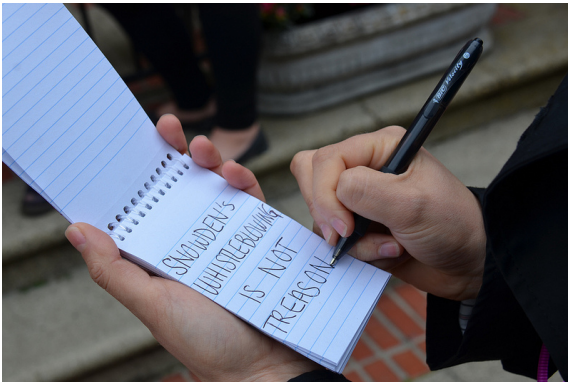 SNOWDEN'S
WHISTLEBLOWING
IS NOT
TREASON
BIC Velocity